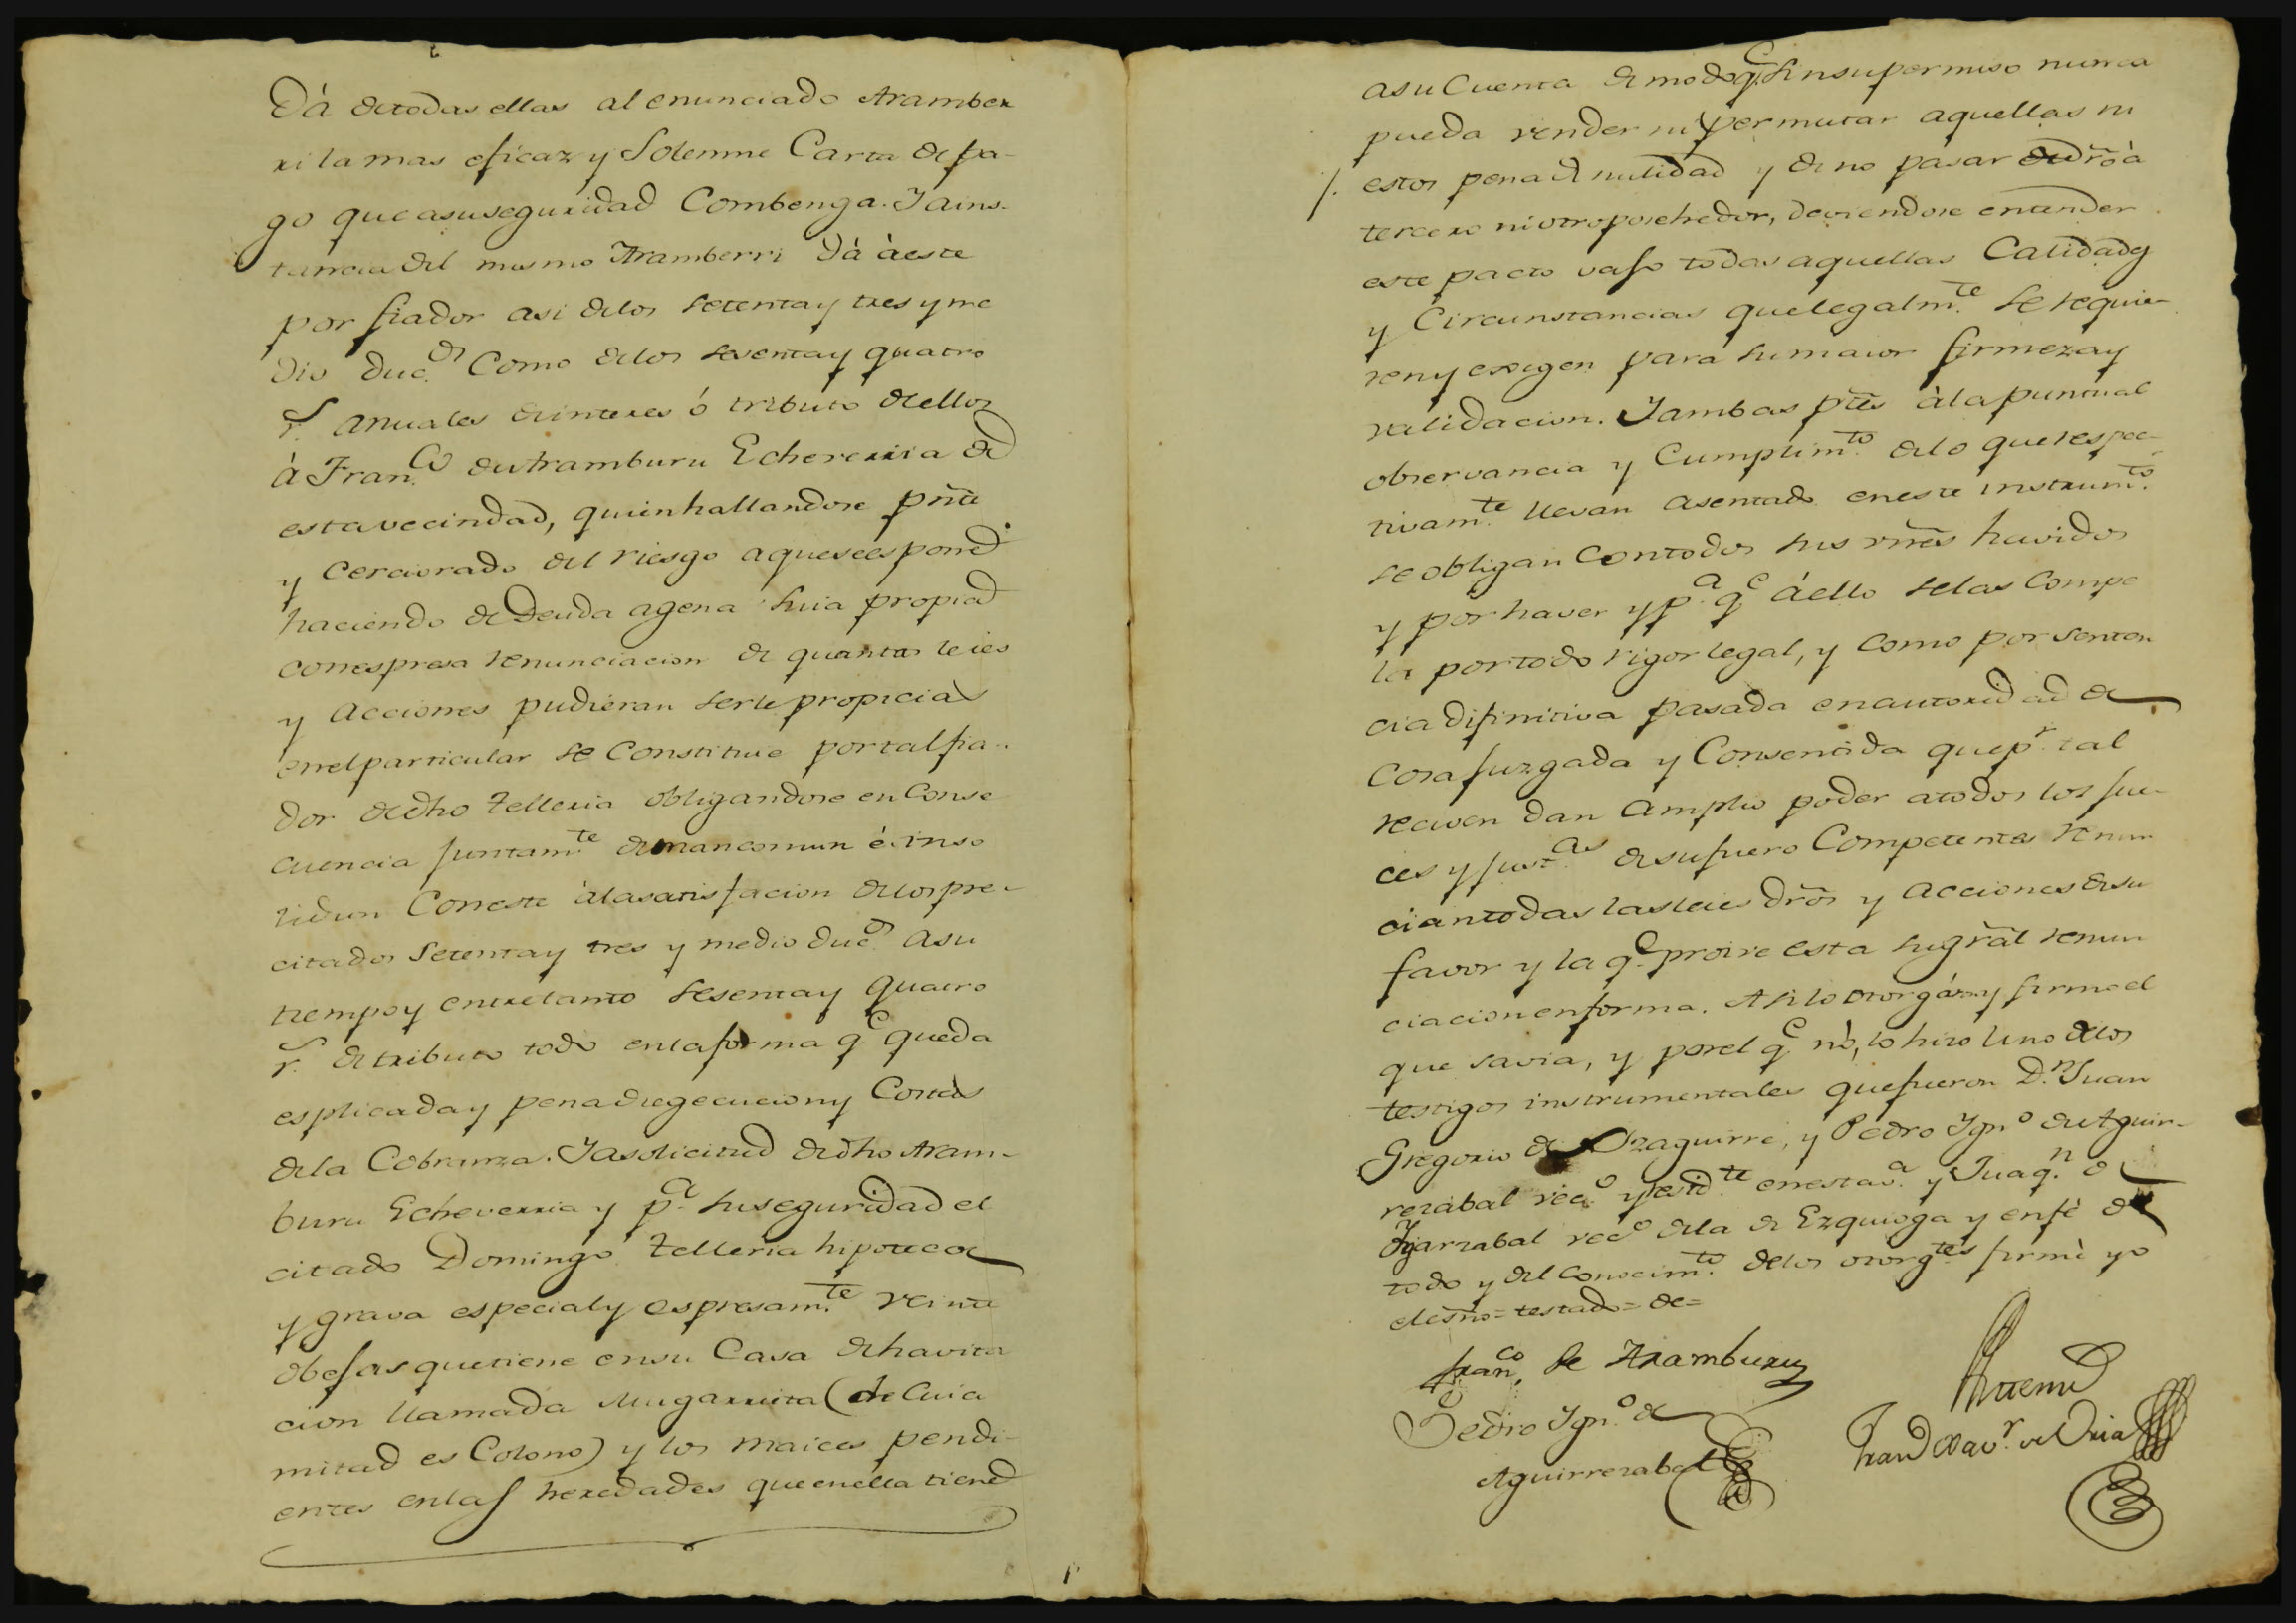 Dá detodas ellas al enunciado Aramber
ri la mas eficaz y Solemne Carta de pa-
go que asuseguridad Combenga. Y a ins-
tancia del mismo Aramberri dá à este
por fiador asi delos setenta y tres y me
dio duc.os Como delos sesenta y quatro
r.s anuales deinteres ó tributo de ellos
à Fran.co de Aramburu Echeverria de
esta vecindad, quien hallandose pñte
y Cerciorado del riesgo aquese espone
haciendo de Deuda agena suia propia
con espresa renunciacion de quantas leies
y acciones pudieran serle propicias
enel particular se Constitue por tal fia-
dor de dho Telleria obligandose en Conse
cuencia juntam.te demancomun é inso
lidun Con este àla satisfacion delos pre-
citados Setenta y tres y medio duc.os a su
tiempo y entretanto sesenta y quatro
r.s de tributo todo enla forma q.e queda
esplicada y pena de egecucion y Costas
dela Cobranza. Y a solicitud de dho Aram-
buru Echeverria y p.a su seguridad el
citado Domingo Telleria hipoteca
y grava especial y espresam.te veinte
obejas que tiene en su Casa de havita
cion llamada Mugarrieta (de Cuia
mitad es Colono) y los maices pendi-
entes enlas heredades que en ella tiene
a su Cuenta de modo q.e sin su permiso nunca
pueda vender ni permutar aquellas ni
estos pena de nulidad y de no pasar de dr̃o à
tercero ni otro posehedor, deviendose entender
este pacto vajo todas aquellas Calidades
y Circunstancias que legalm.te se requie-
ren y exigen para su maior firmeza y
validacion. Y ambas ptẽs à la puntual
observancia y Cumplim.to delo que respec-
tivam.te llevan asentado en este instrum.to
se obligan Con todos sus vnẽs havidos
y por haver y p.a q.e à ello se las Compe
la por todo rigor legal, y Como por senten
cia difinitiva pasada en autoridad de
Cosa juzgada y Consentida que p.r tal
reciven dan amplio poder a todos los jue-
ces y just.as de su fuero Competentes renun
cian todas las leies drõs y acciones de su
favor y la q.e proive esta su grãl renun
ciacion en forma. Asi lo otorgáron y firmó el
que savia, y por el q.e nò, lo hizo uno delos
testigos instrumentales que fueron D.n Juan
Gregorio de Ozaguirre, y Pedro Ygn.o de Aguir-
rezabal vec.o y resid.te en esta v.a y Juaq.n de
Ygarzabal vec.o dela de Ezquioga y en fè de
todo y del conocim.to delos otorg.tes firmè yo
el esñno = testado = de =
Fran.co de Aramburu
Pedro Ygn.o de
Aguirrezabal
Ante mi
Fran.co Xav.r de Oria